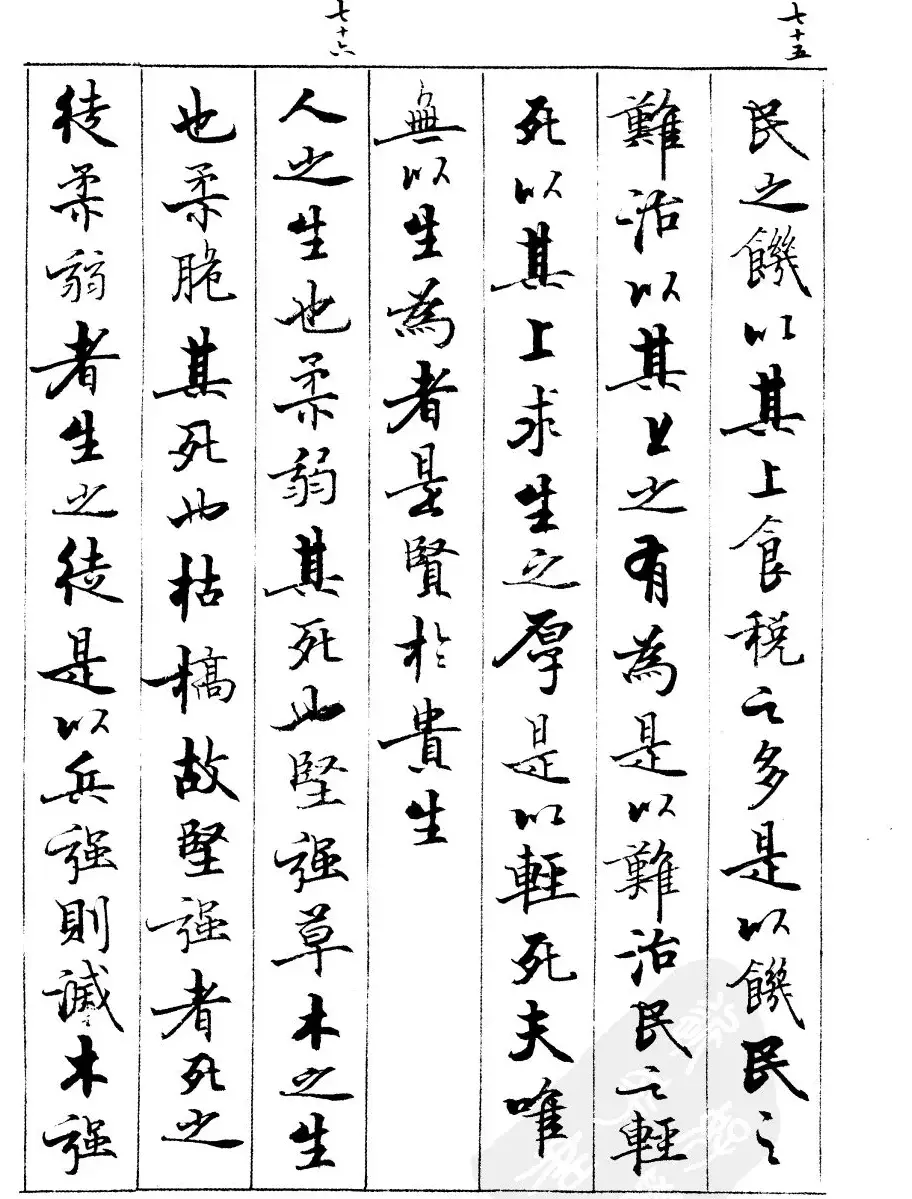 七十五
民之饑以其上食税之多是以饑民之
難治以其上之有為是以難治民之輕
死以其上求生之厚是以輕死夫唯
無以生為者是賢於貴生
七十六
人之生也柔弱其死也堅强草木之生
也柔脆其死也枯槁故堅强者死之
徒柔弱者生之徒是以兵强則滅木强